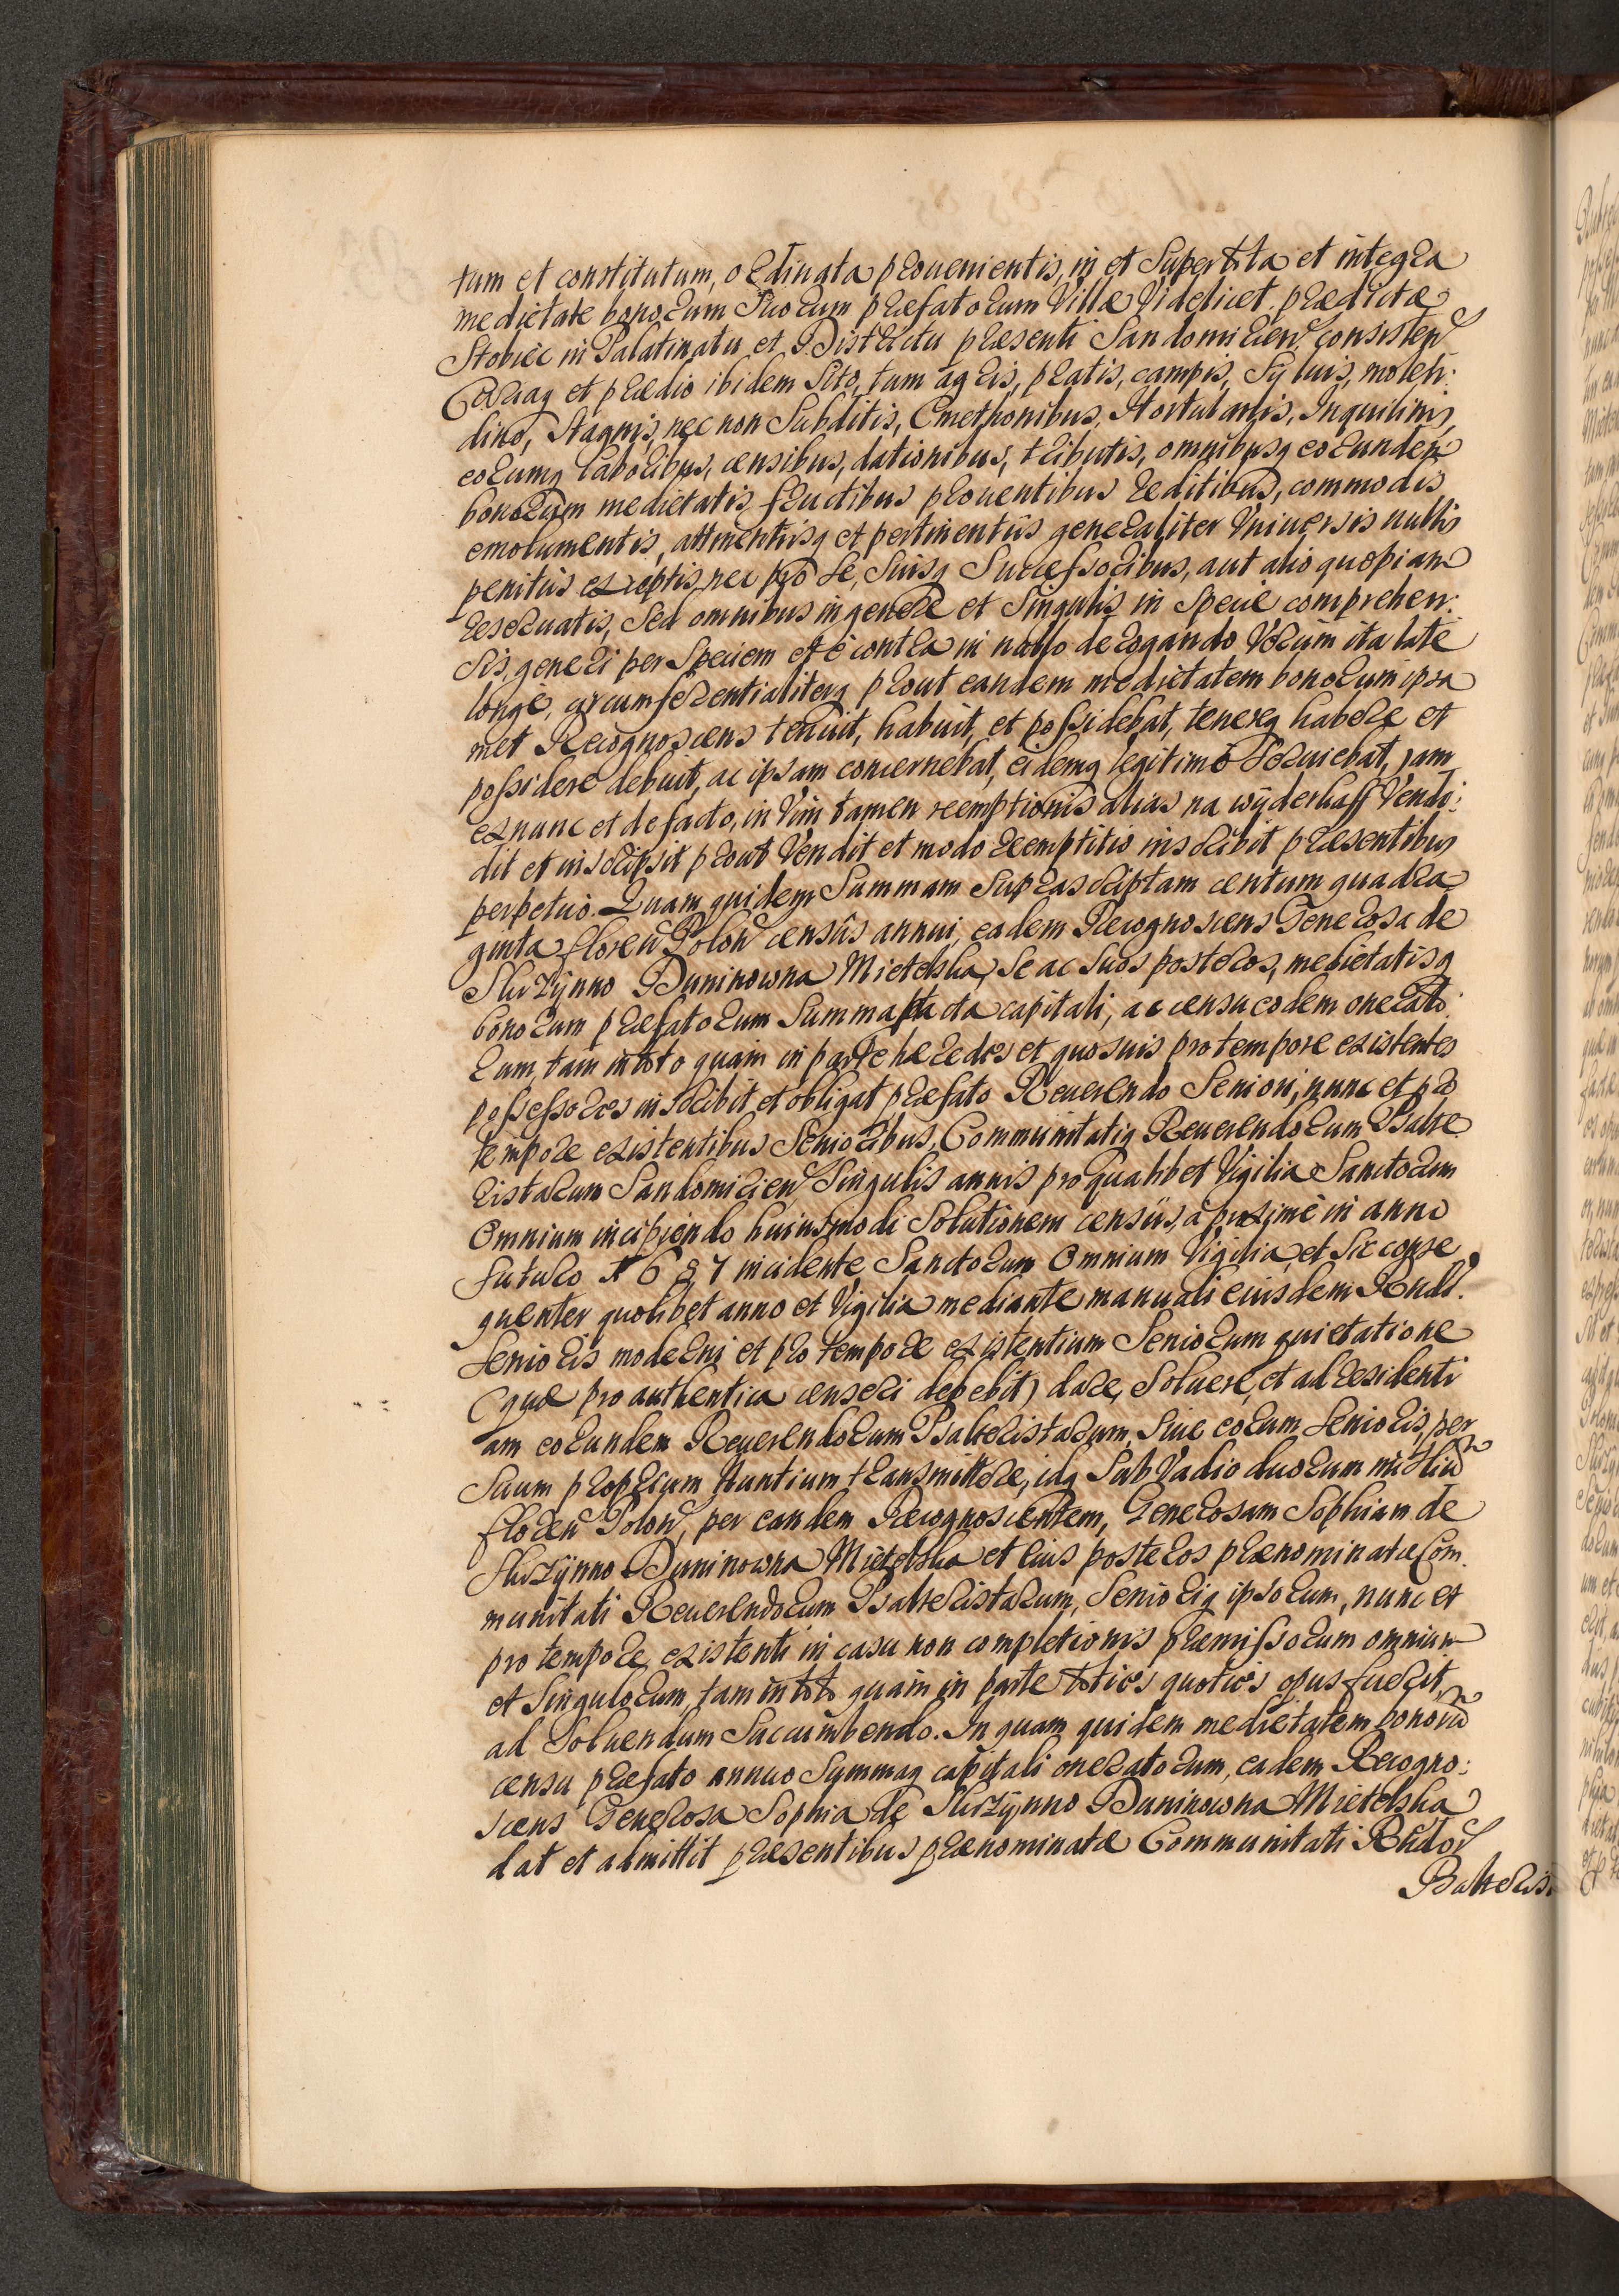 tum et constitutum, ordinata prouenientis, in et Super tota et integra
medietate bonorum Suorum præfatorum Villæ Videlicet prædictæ
Stobiec in Palatinatu et Districtu præsenti Sandomirien consisten
Curiaq et prædio ibidem Sito, tum agris, pratis, campis, Syluis, molen:
dino, Stagnis, nec non Subditis, Cmethonibus, Hortulanis, Inquilinis,
eorumq laboribus, censibus, dationibus, tributis, omnibusq eorundem
bonorum medietatis fructibus prouentibus reditibus, commodis
emolumentis, attinentiisq et pertinentiis generaliter Vniuersis nullis
penitus exceptis, nec pro se, Suisq Successoribus, aut alio quopiam
reseruatis, Sed omnibus in genere et Singulis in Specie comprehen:
sis, generi per Speciem et è contra in nullo derogando Verum ita latè
longè, circumferentialiterq prout eandem medietatem bonorum ipsa
met Recognoscens tenuit, habuit, et possidebat, tenereq habere et
possidere debuit, ac ipsam concernebat, eidemq legitimè Seruiebat, jam
exnunc et de facto, in Vim tamen reemptionis alias na wyderkaff Vendi:
dit et inscripsit prout Vendit et modo reemptitio inscribit præsentibus
perpetuò. Quam quidem Summam Suprascriptam centum quadra
ginta floren Polon censûs annui, eadem Recognoscens Generosa de
Skrzynno Duninowna Mietelska, Se ac Suos posteros, medietatisq
bonorum præfatorum Summa tacta capitali, ac censu eodem onerato
rum, tam in toto quam in parte hæredes et quosuis pro tempore existentes
possessores inscribit et obligat præfato Reuerendo Seniori, nunc et pro
tempore existentibus Senioribus, Communitatiq Reuerendorum Psalte
ristarum Sandomirien Singulis annis pro qualibet Vigilia Sanctorum
Omnium incipiendo huiusmodi Solutionem censûs, à proximè in anno
futuro 1687 incidente Sanctorum Omnium Vigilia, et sic conse
quenter quolibet anno et Vigilia mediante manuali eiusdem Rndi.
Senioris moderni et pro tempore existentium Seniorum quietatione
(quæ pro authentica censeri debebit) dare, Soluere, et ad residenti
am eorundem Reuerendorum Psalteristarum, Siue eorum Senioris, per
Suum proprium Nuntium transmittere, idq Sub Vadio duorum milliu
floren Polon, per eandem Recognoscentem, Generosam Sophiam de
Skrzynno Duninowna Mietelska et eius posteros prænominatæ Com
munitati Reuerendorum Psalteristarum, Senioriq ipsorum, nunc et
pro tempore existenti in casu non completionis præmissorum omnium
et Singulorum, tam in toto quam in parte toties quoties opus fuerit,
ad Soluendum Succumbendo. In quam quidem medietatem bonoru
censu præfato annuo Summaq capitali oneratorum, eadem Recogno:
scens Generosa Sophia de Skrzynno Duninowna Mietelska
dat et admittit præsentibus prænominatæ Communitati Rndor
Psalteris: